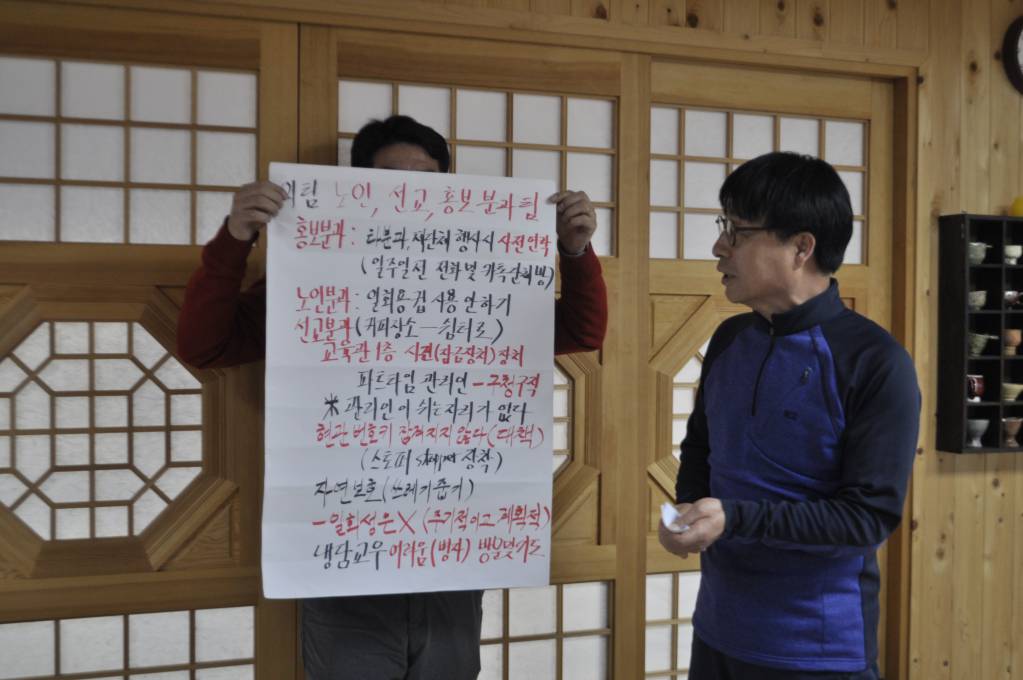 팀 노인, 선교, 홍보분과팀
홍보분과 : 타분과, 타단체 행사시 사전연락
(일주일전 전화및 카톡단체방)
노인분과 : 일회용컵 사용 안하기
선교분과 (커피장소 — 쉼터로)
교육관 1층 시건(잠금장치)장치
파트타임 관리인 - 구청구직
米 관리인이 쉬는자리가 없다
현관 번호키 잠겨지지 않다 (대책)
(스토퍼 장착)
자연보호 (쓰레기줍기)
- 일회성은 X (주기적이고 계획적)
냉담교우 어려움(방사)